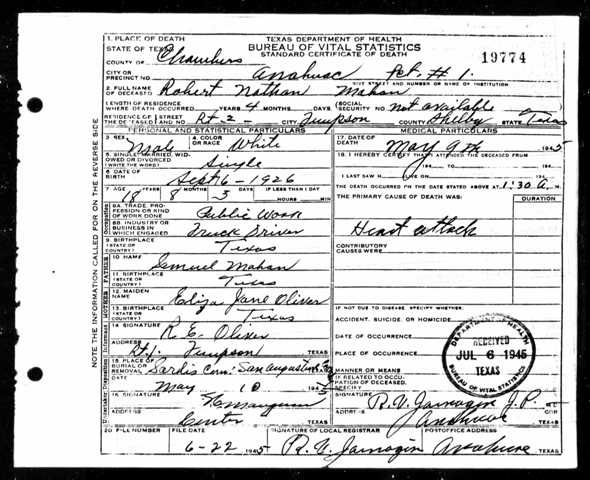 TEXAS DEPARTMENT OF HEALTH
BUREAU OF VITAL STATISTICS
STANDARD CERTIFICATE OF DEATH
19774
1. PLACE OF DEATH
STATE OF TEXAS
COUNTY OF Chambers
CITY OR PRECINCT NO. Anahuac Pct. # 1.
GIVE STREET AND NUMBER OR NAME OF INSTITUTION
2. FULL NAME OF DECEASED Robert Nathan Mahan
LENGTH OF RESIDENCE WHERE DEATH OCCURRED YEARS 4 MONTHS DAYS
SOCIAL SECURITY NO. Not available
RESIDENCE OF THE DECEASED STREET AND NO. Rt-2- CITY Timpson COUNTY Shelby STATE Texas
PERSONAL AND STATISTICAL PARTICULARS
3. SEX Male
4. COLOR OR RACE White
5. SINGLE, MARRIED, WIDOWED OR DIVORCED (WRITE THE WORD) Single
6. DATE OF BIRTH Sept 6-1926
7. AGE YEARS 18 MONTHS 8 DAYS 3 IF LESS THAN 1 DAY HOURS MIN
8A. TRADE, PROFESSION OR KIND OF WORK DONE Public Work
8B. INDUSTRY OR BUSINESS IN WHICH ENGAGED Truck Driver
9. BIRTHPLACE (STATE OR COUNTRY) Texas
FATHER
10. NAME Samuel Mahan
11. BIRTHPLACE (STATE OR COUNTRY) Texas
MOTHER
12. MAIDEN NAME Eliza Jane Oliver
13. BIRTHPLACE (STATE OR COUNTRY) Texas
14. SIGNATURE R. E. Oliver
ADDRESS Rt 1. Timpson TEXAS
15. PLACE OF BURIAL OR REMOVAL Sardis Cem. San Augustine
DATE May 10 194
16. SIGNATURE
ADDRESS Center TEXAS
MEDICAL PARTICULARS
17. DATE OF DEATH May 9th 1945
18. I HEREBY CERTIFY THAT I ATTENDED THE DECEASED FROM
194
I LAST SAW H ALIVE ON 194
THE DEATH OCCURRED ON THE DATE STATED ABOVE AT 1:30 A. M.
THE PRIMARY CAUSE OF DEATH WAS:
DURATION
Heart attack
CONTRIBUTORY CAUSES WERE:
IF NOT DUE TO DISEASE, SPECIFY WHETHER:
ACCIDENT, SUICIDE, OR HOMICIDE
DATE OF OCCURRENCE
PLACE OF OCCURRENCE
MANNER OR MEANS
IF RELATED TO OCCUPATION OF DECEASED, SPECIFY
SIGNATURE R. V. Jarnagin J. P.
ADDRESS Anahuac TEXAS
DEPARTMENT OF HEALTH
RECEIVED
JUL 6 1945
TEXAS
BUREAU OF VITAL STATISTICS
20. FILE NUMBER
FILE DATE 6-22 1945
SIGNATURE OF LOCAL REGISTRAR R. V. Jarnagin
POSTOFFICE ADDRESS Anahuac TEXAS
NOTE THE INFORMATION CALLED FOR ON THE REVERSE SIDE